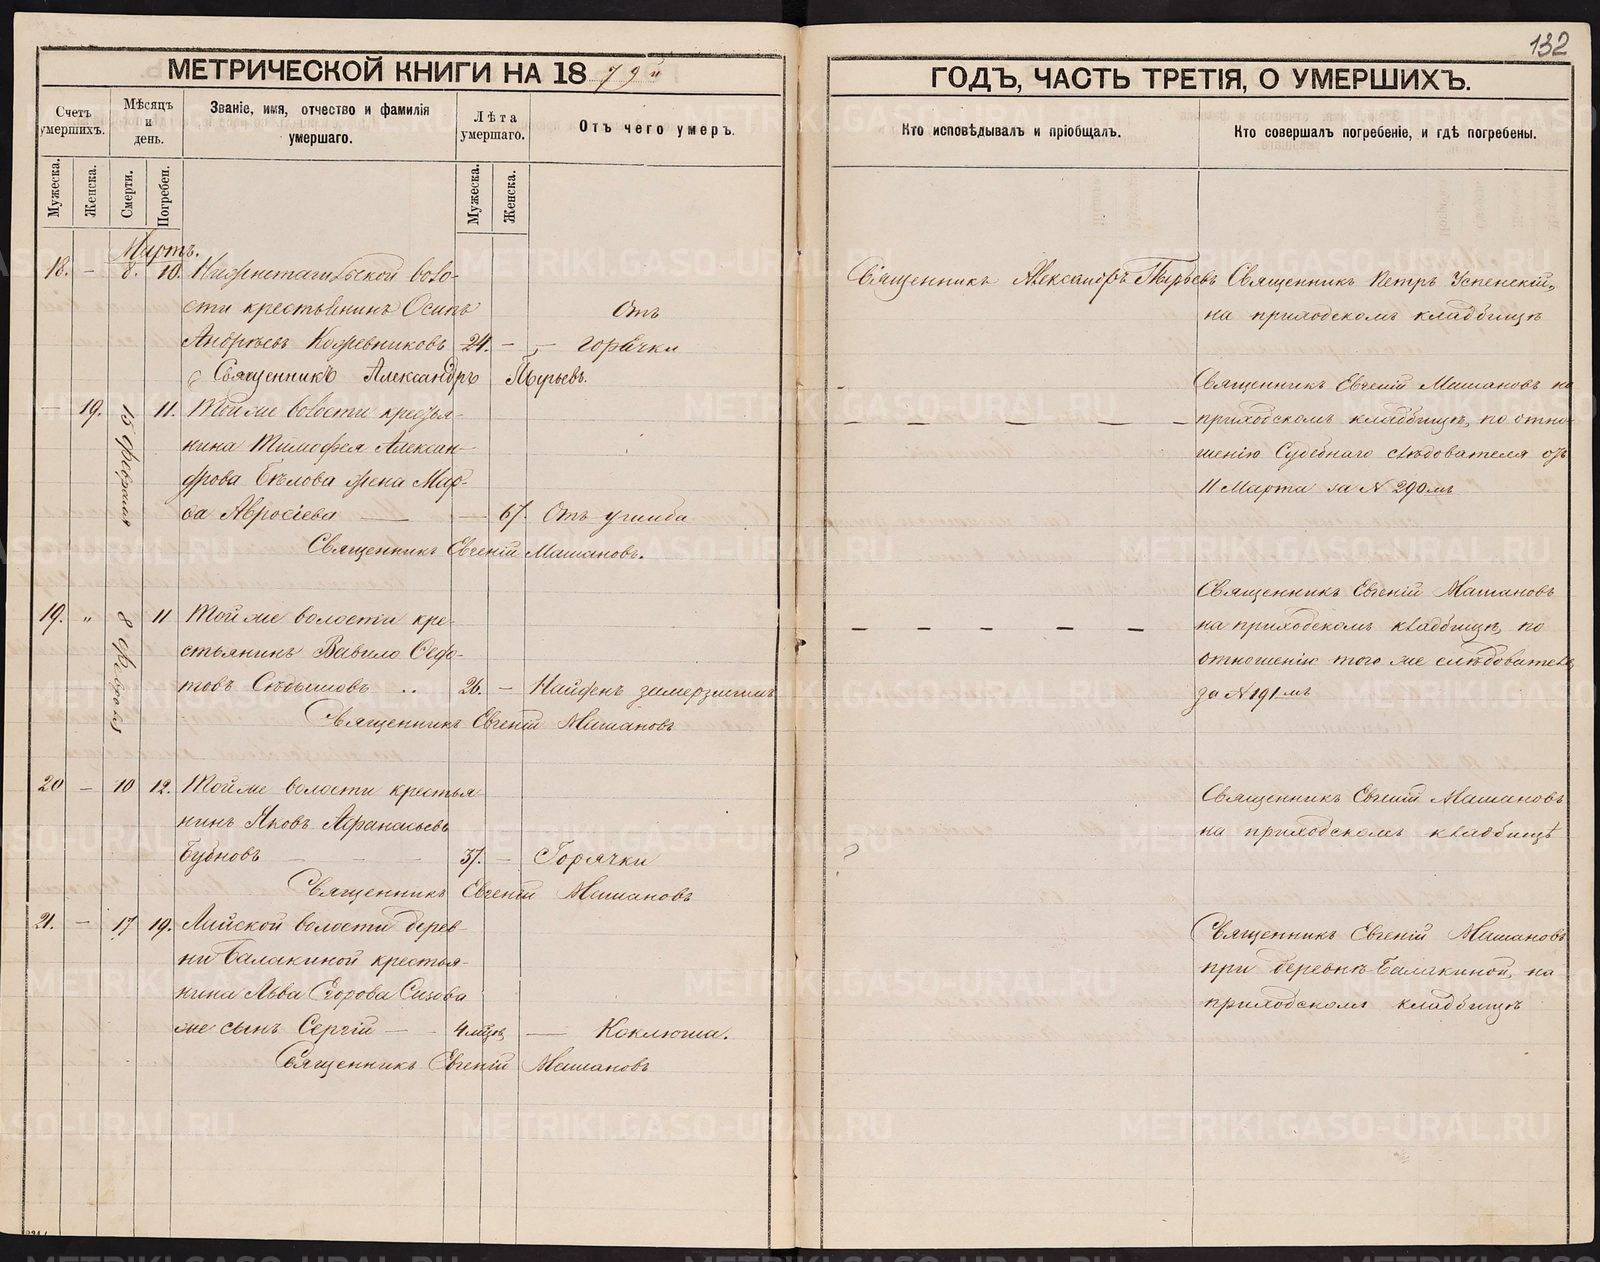 132
МЕТРИЧЕСКОЙ КНИГИ НА 1879й
ГОДЪ, ЧАСТЬ ТРЕТІЯ, О УМЕРШИХЪ.
Счетъ умершихъ.
Мѣсяцъ и день.
Званіе, имя, отчество и фамилія умершаго.
Лѣта умершаго.
Отъ чего умеръ.
Кто исповѣдывалъ и пріобщалъ.
Кто совершалъ погребеніе, и гдѣ погребены.
Мужеска.
Женска.
Смерти.
Погребен.
Мужеска.
Женска.
Мартъ.
18. – 8. 10. Нижнетагильской воло-
сти крестьянинъ Осипъ Отъ
Андреевъ Кожевниковъ 24. – – горячки
Священникъ Александръ
Священникъ Александръ Священникъ Петръ Успенскій,
на приходскомъ кладбищѣ
– 19. 15 февраля 11. Той же волости кресть-
нина Тимофея Алексан-
дрова Бѣлова жена Мар-
ѳа – – 67. Отъ ушиба
Священникъ Евгеній Машановъ.
Священникъ Евгеній Машановъ на
приходскомъ кладбищѣ, по отно-
шенію Судебнаго слѣдователя отъ
11 Марта за N 290мъ
19. " 8 февраля 11 Той же волости кре-
стьянинъ Вавило Ѳедо-
товъ 26. – Найденъ замерзшимъ
Священникъ Евгеній Машановъ
Священникъ Евгеній Машановъ
на приходскомъ кладбищѣ, по
отношенію того же слѣдователя
за N 191мъ
20 – 10 12. Той же волости крестья
нинъ Яковъ Афанасьевъ
Бубновъ – – – 37. – Горячки
Священникъ Евгеній Машановъ
Священникъ Евгеній Машановъ
на приходскомъ кладбищѣ
21. – 17 19. Лайской волости дерев-
ни Балакиной крестья-
нина Льва Егорова Сизова
же сынъ Сергій – – 4 мѣс. – Коклюша.
Священникъ Евгеній Машановъ
Священникъ Евгеній Машановъ
при деревнѣ Балакиной, на
приходскомъ кладбищѣ
METRIKI.GASO-URAL.RU